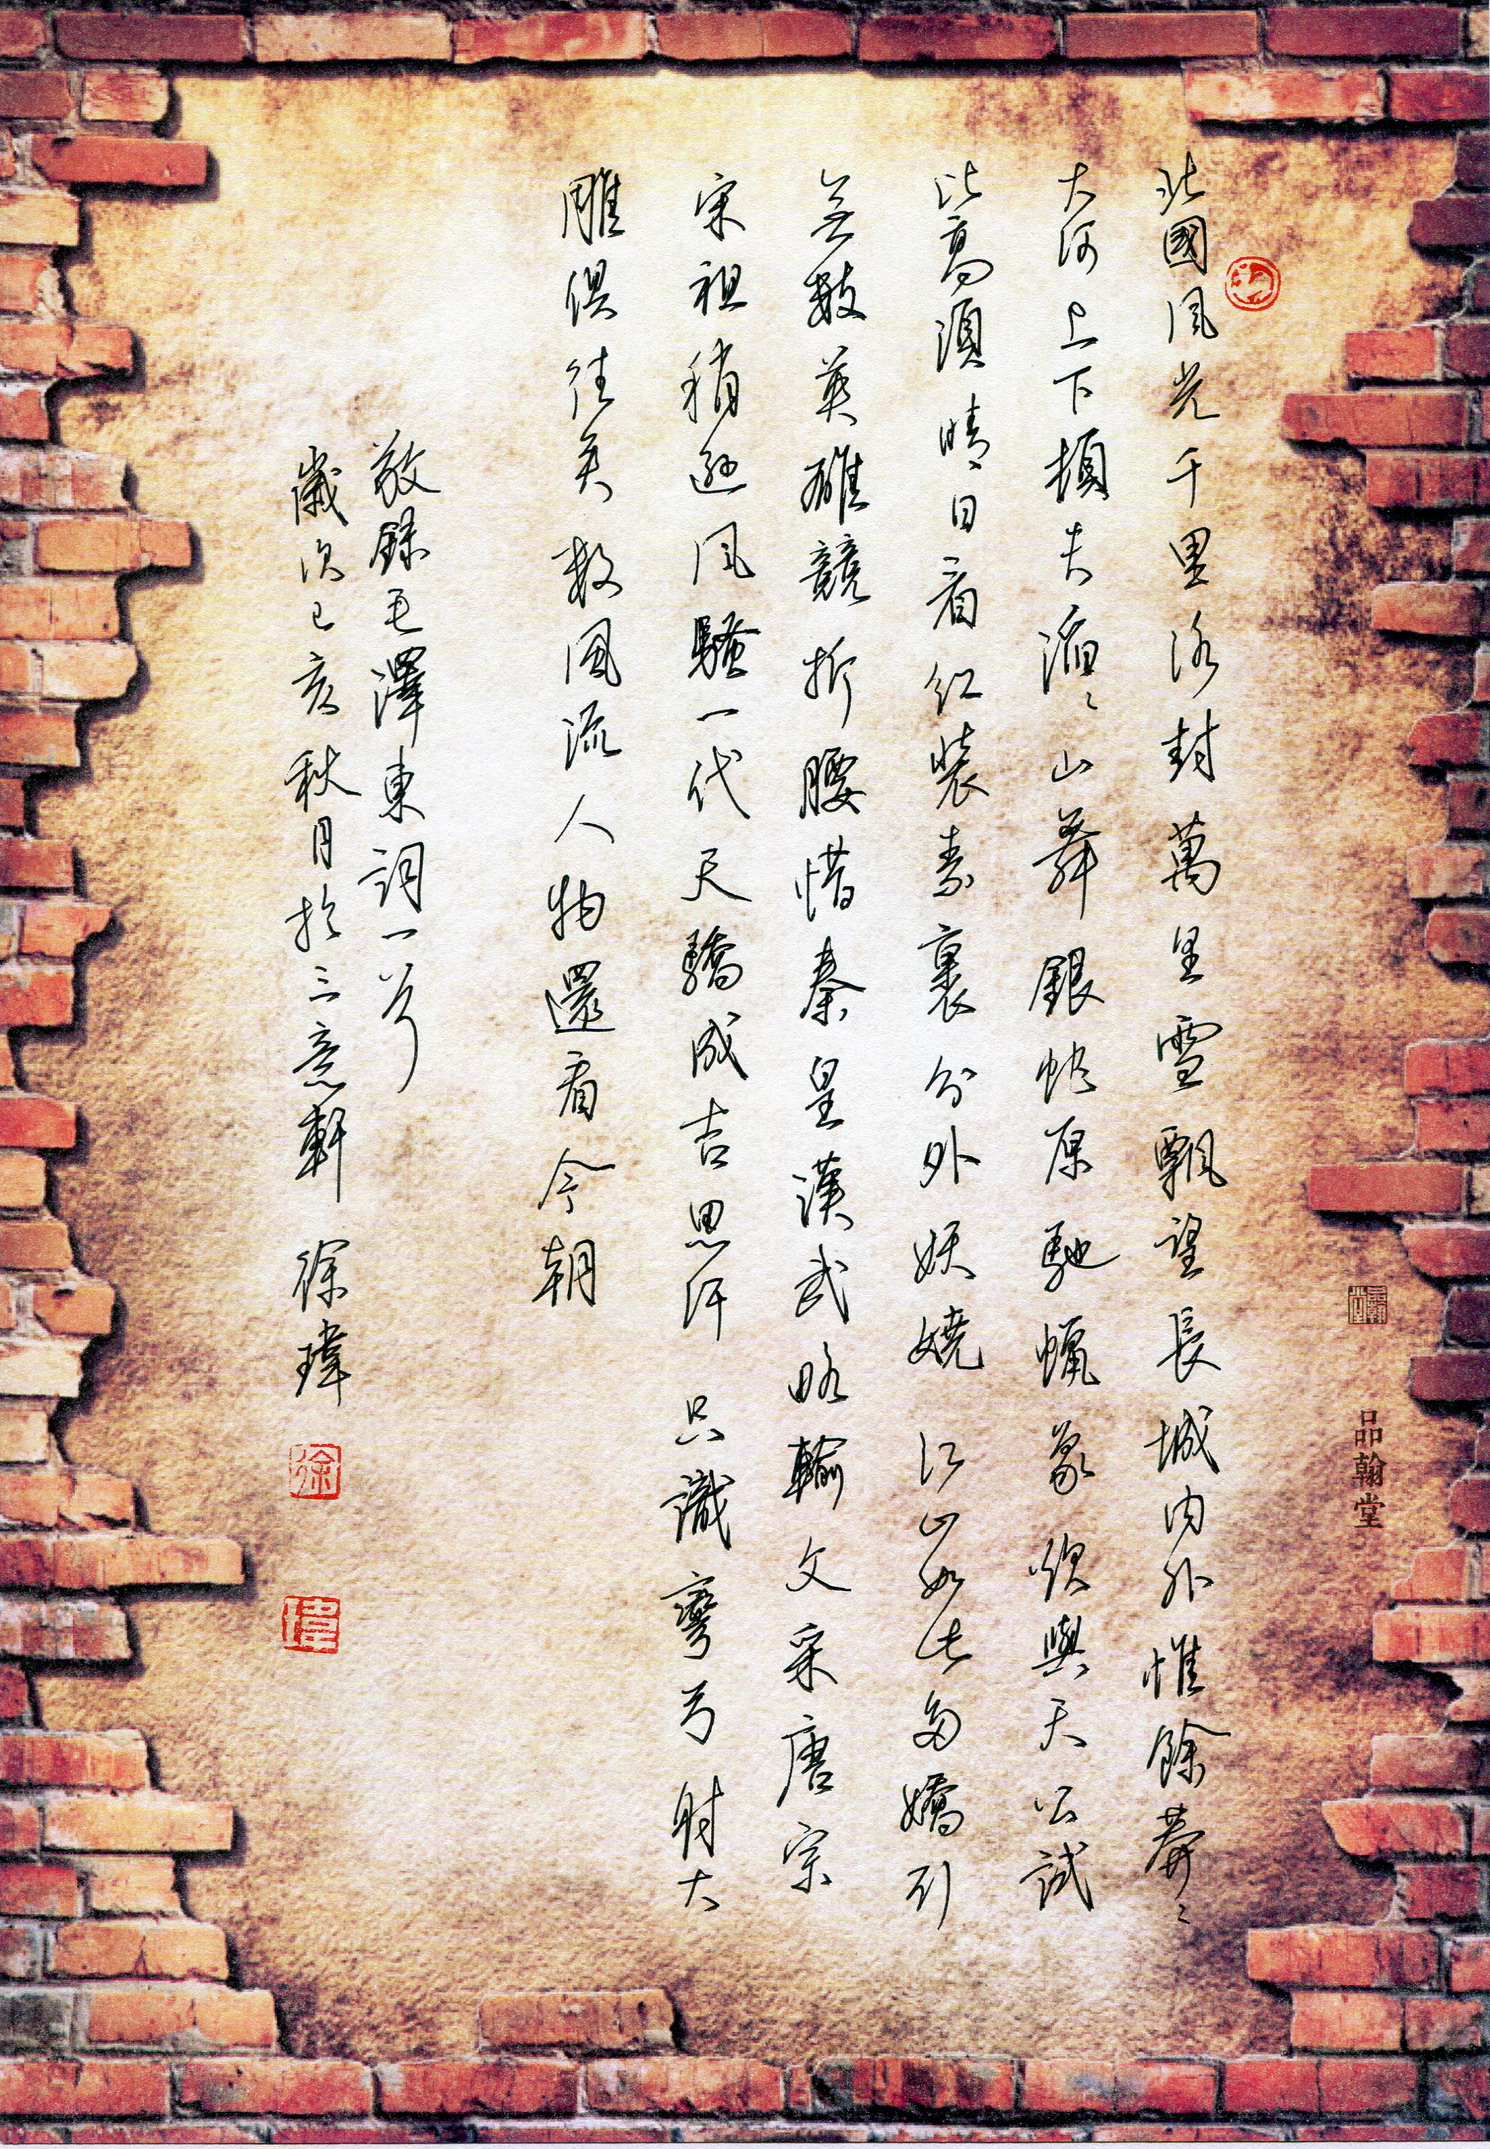 北國風光千里冰封萬里雪飄望長城內外惟餘莽〻
大河上下頓失滔〻山舞銀蛇原馳蠟象欲與天公試
比高須晴日看紅裝素裹分外妖嬈江山如此多嬌引
無數英雄競折腰惜秦皇漢武略輸文采唐宗
宋祖稍遜風騷一代天驕成吉思汗只識彎弓射大
雕俱往矣數風流人物還看今朝
敬錄毛澤東詞一首
歲次己亥秋月於三意軒 徐瑋
徐
瑋
品翰堂
品翰堂